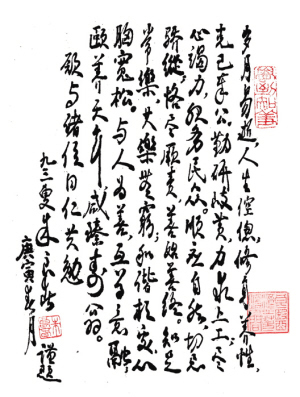 岁月易逝，人生倥偬。修身养性，
克己奉公。勤研政黄，力求上工。尽
心竭力，服务民众。顺应自然，切忌
骄纵。恪尽厥责，善始善终。知足
常乐，其乐无穷。和谐相处，心
胸宽松。与人为善，互学意融。
颐养天年，咸臻寿翁。
愿与诸位同仁共勉
九三叟
庚寅春月
谨题